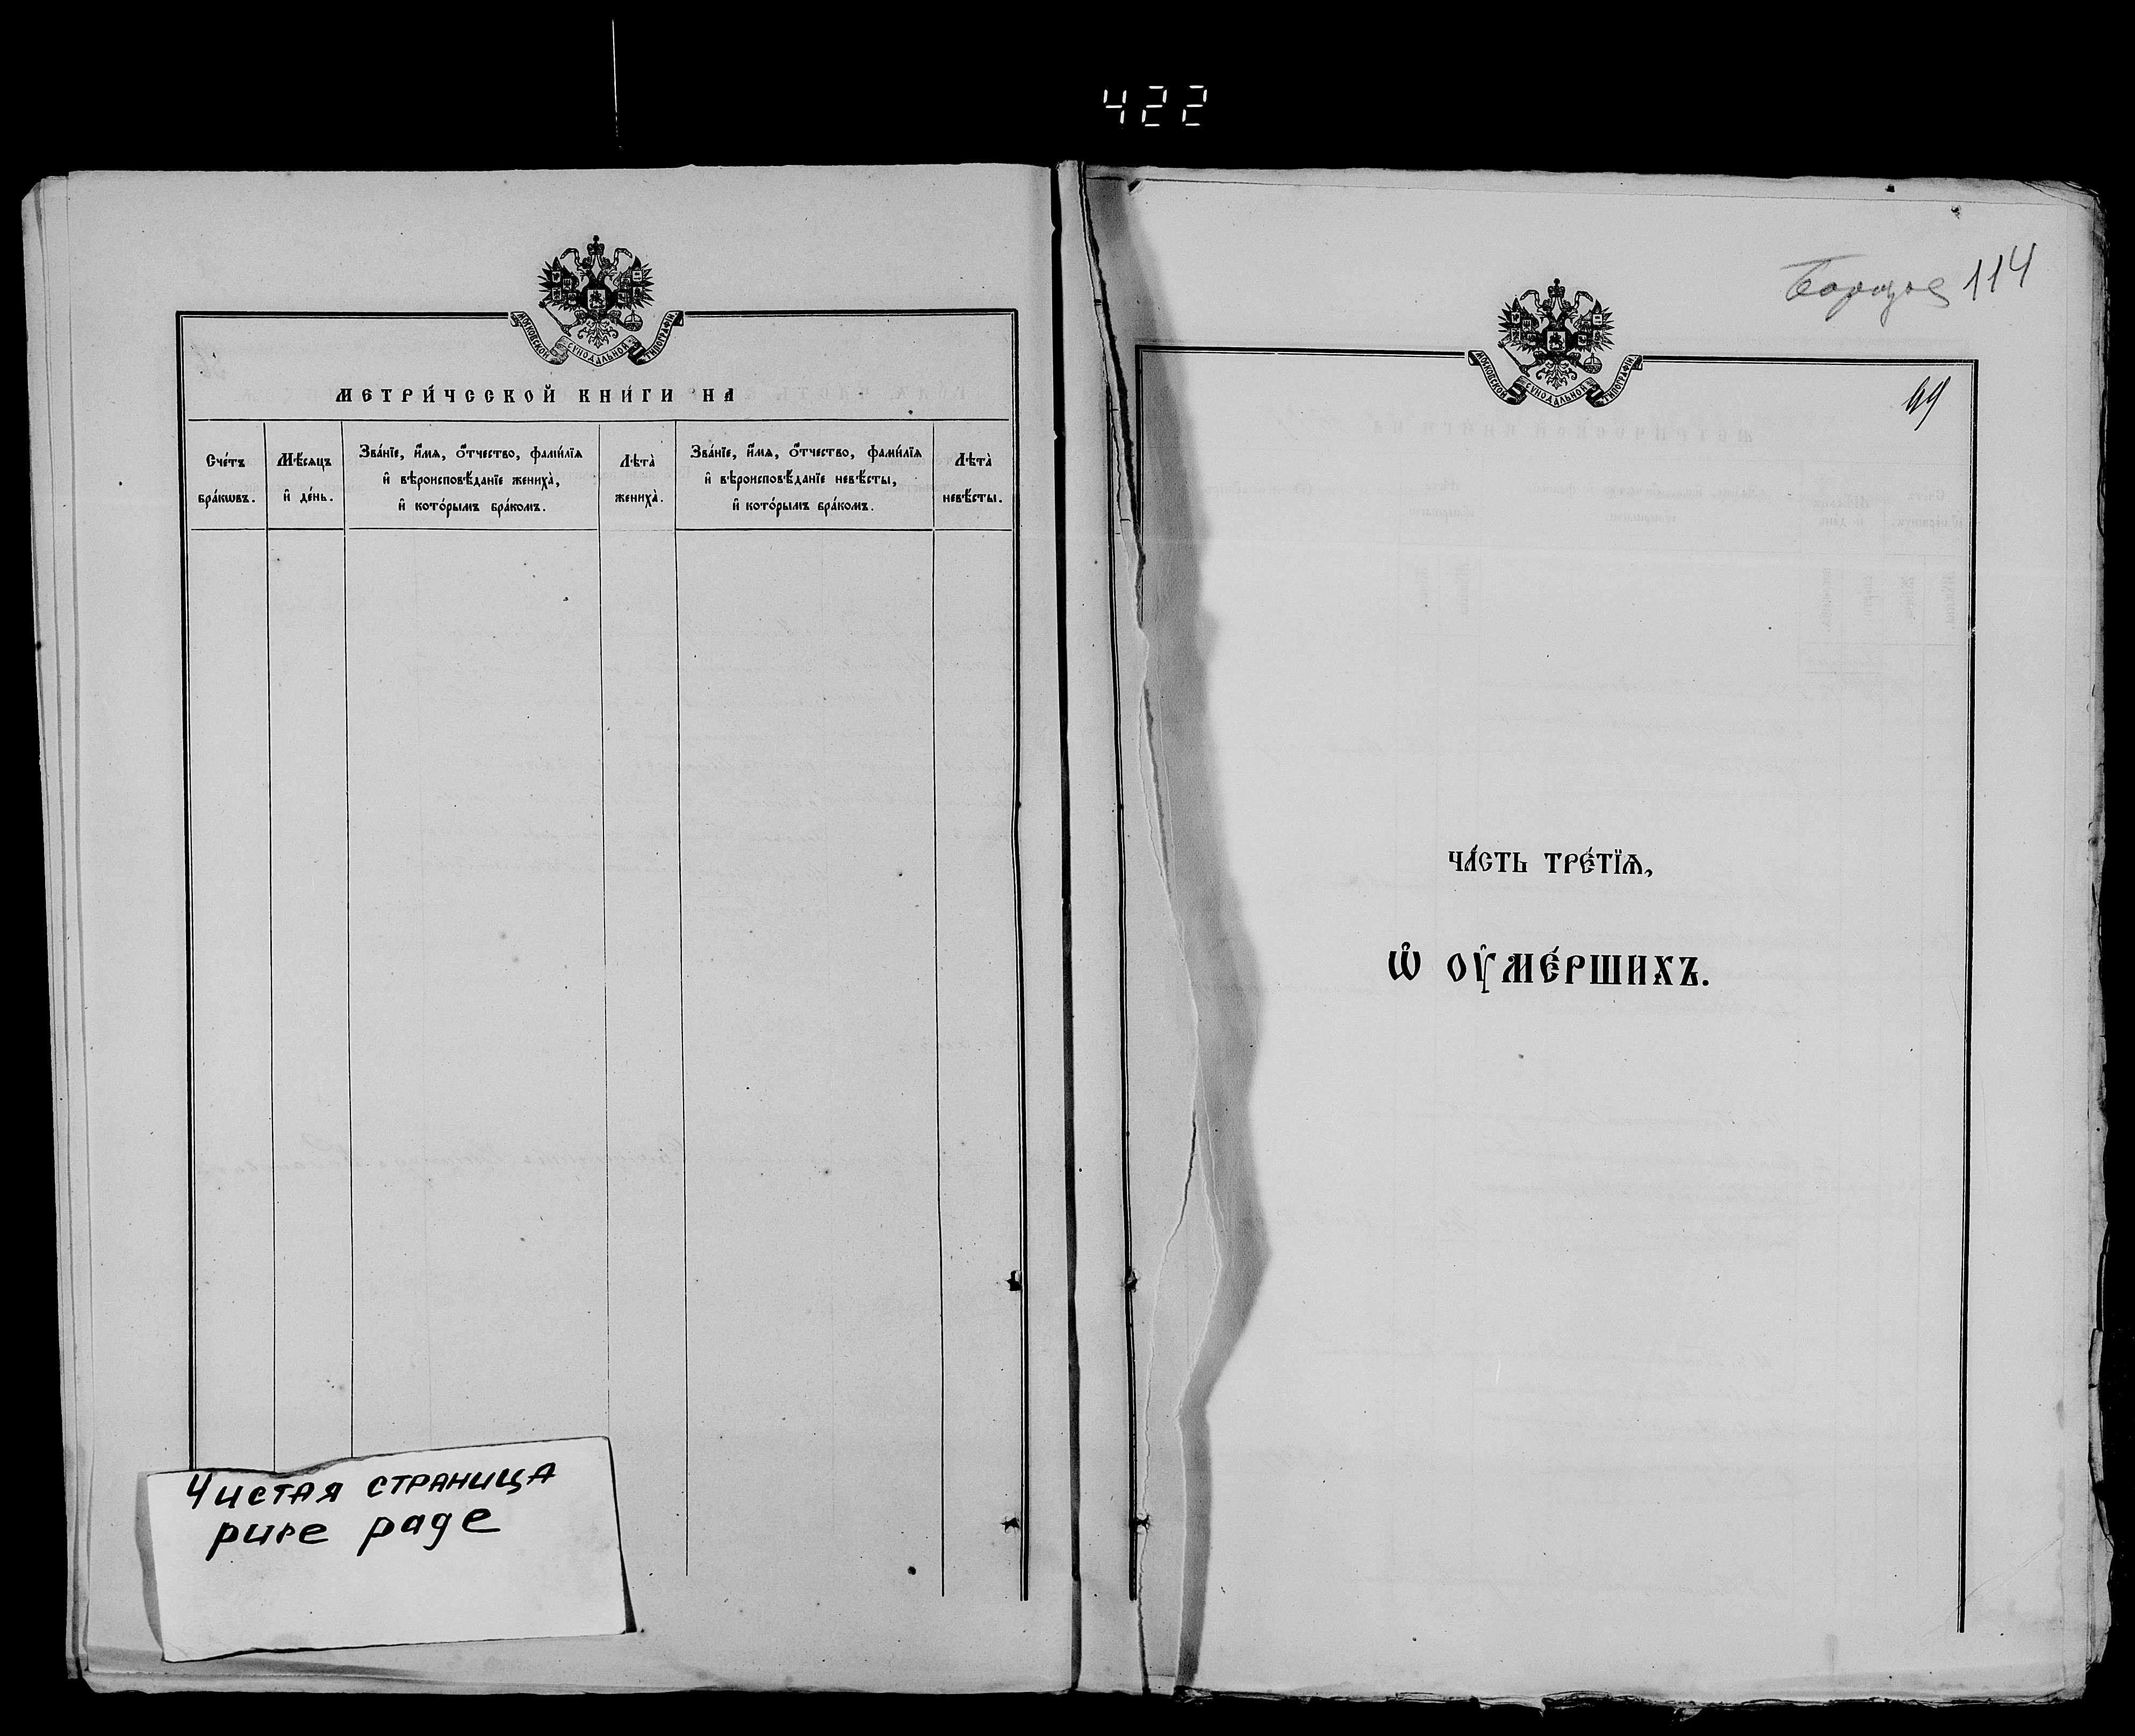 422
МОСКОВСКОЙ СУНОДАЛЬНОЙ ТИПОГРАФІИ
МЕТРИ́ЧЕСКОЙ КНИ́ГИ НА
Сче́тъ
бра́кѡвъ.
Мѣ́сѧцъ
и҆ де́нь.
Зва́нїе, и҆́мѧ, ѻ҆́тчество, фами́лїѧ
и҆ вѣроисповѣ́данїе жениха̀,
и҆ кото́рымъ бра́комъ.
Лѣта̀
жениха̀.
Зва́нїе, и҆́мѧ, ѻ҆́тчество, фами́лїѧ
и҆ вѣроисповѣ́данїе невѣ́сты,
и҆ кото́рымъ бра́комъ.
Лѣта̀
невѣ́сты.
Чистая страница
pure page
114
МОСКОВСКОЙ СУНОДАЛЬНОЙ ТИПОГРАФІИ
99
ЧА́СТЬ ТРЕ́ТЇѦ,
Ѡ҆ ОУ҆МЕ́РШИХЪ.